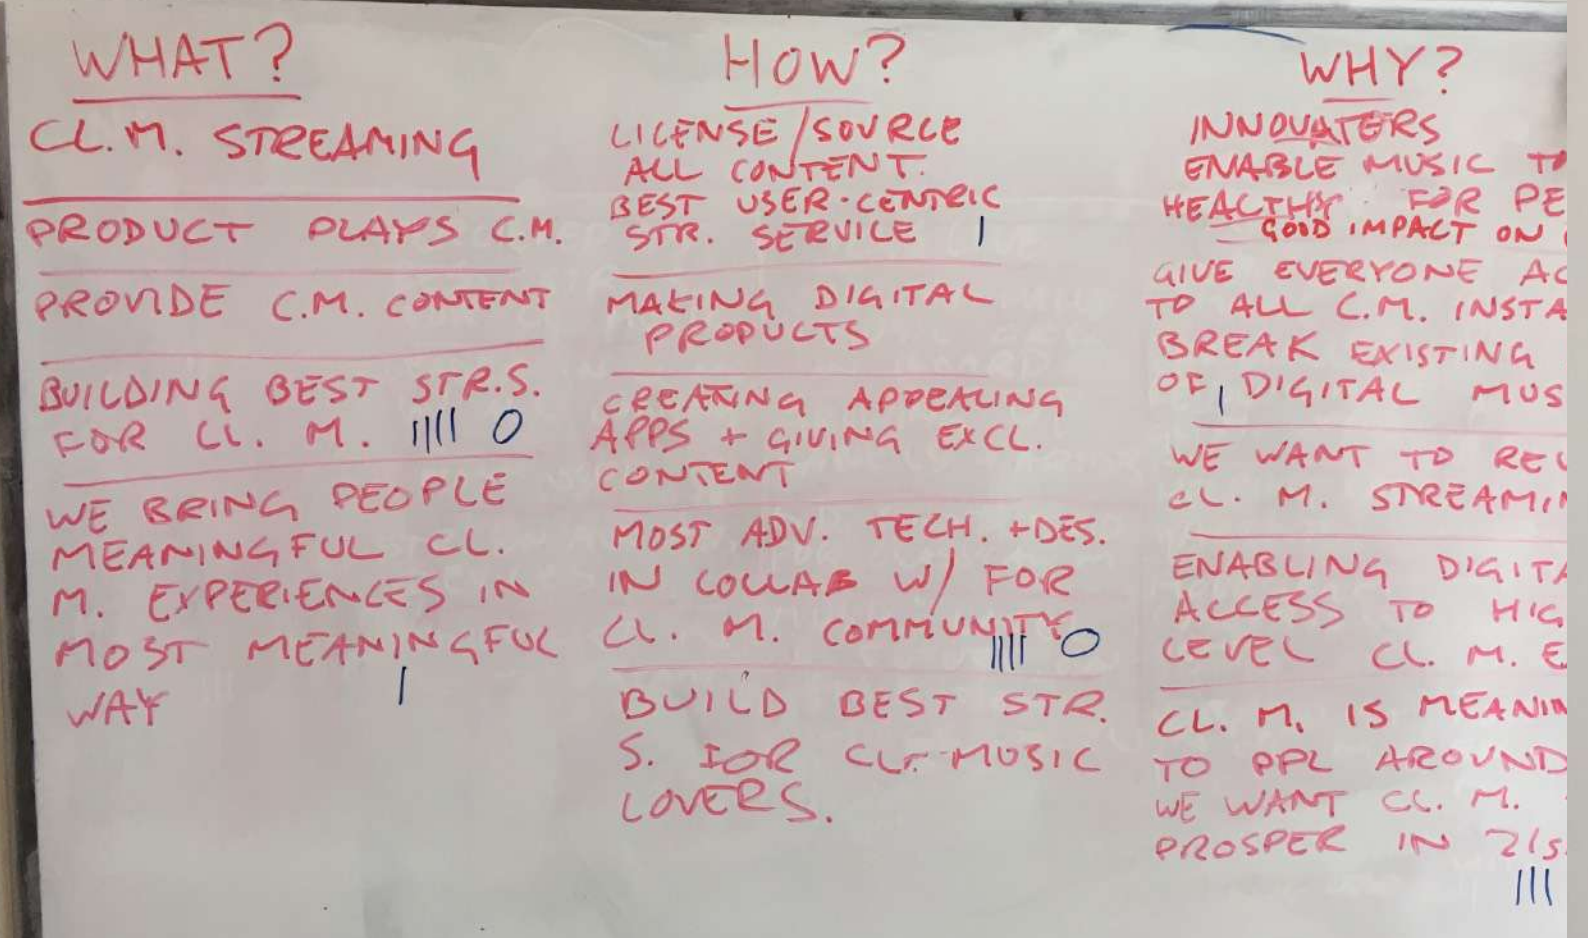 WHAT?
CL.M. STREAMING
PRODUCT PLAYS C.M.
PROVIDE C.M. CONTENT
BUILDING BEST STR.S.
FOR CL. M. |||| O
WE BRING PEOPLE
MEANINGFUL CL.
M. EXPERIENCES IN
MOST MEANINGFUL
WAY |
HOW?
LICENSE/SOURCE
ALL CONTENT.
BEST USER-CENTRIC
STR. SERVICE |
MAKING DIGITAL
PRODUCTS
CREATING APPEALING
APPS + GIVING EXCL.
CONTENT
MOST ADV. TECH. + DES.
IN COLLAB W/ FOR
CL. M. COMMUNITY
|||| O
BUILD BEST STR.
S. FOR CL. MUSIC
LOVERS.
WHY?
INNOVATERS
ENABLE MUSIC TO
HEALTHY FOR PE
GOOD IMPACT ON
GIVE EVERYONE AC
TO ALL C.M. INSTA
BREAK EXISTING
OF | DIGITAL MUS
WE WANT TO REV
CL. M. STREAMIN
ENABLING DIGITA
ACCESS TO HIG
LEVEL CL. M. E
CL. M. IS MEANIN
TO PPL AROUND
WE WANT CL. M.
PROSPER IN 21s
|||